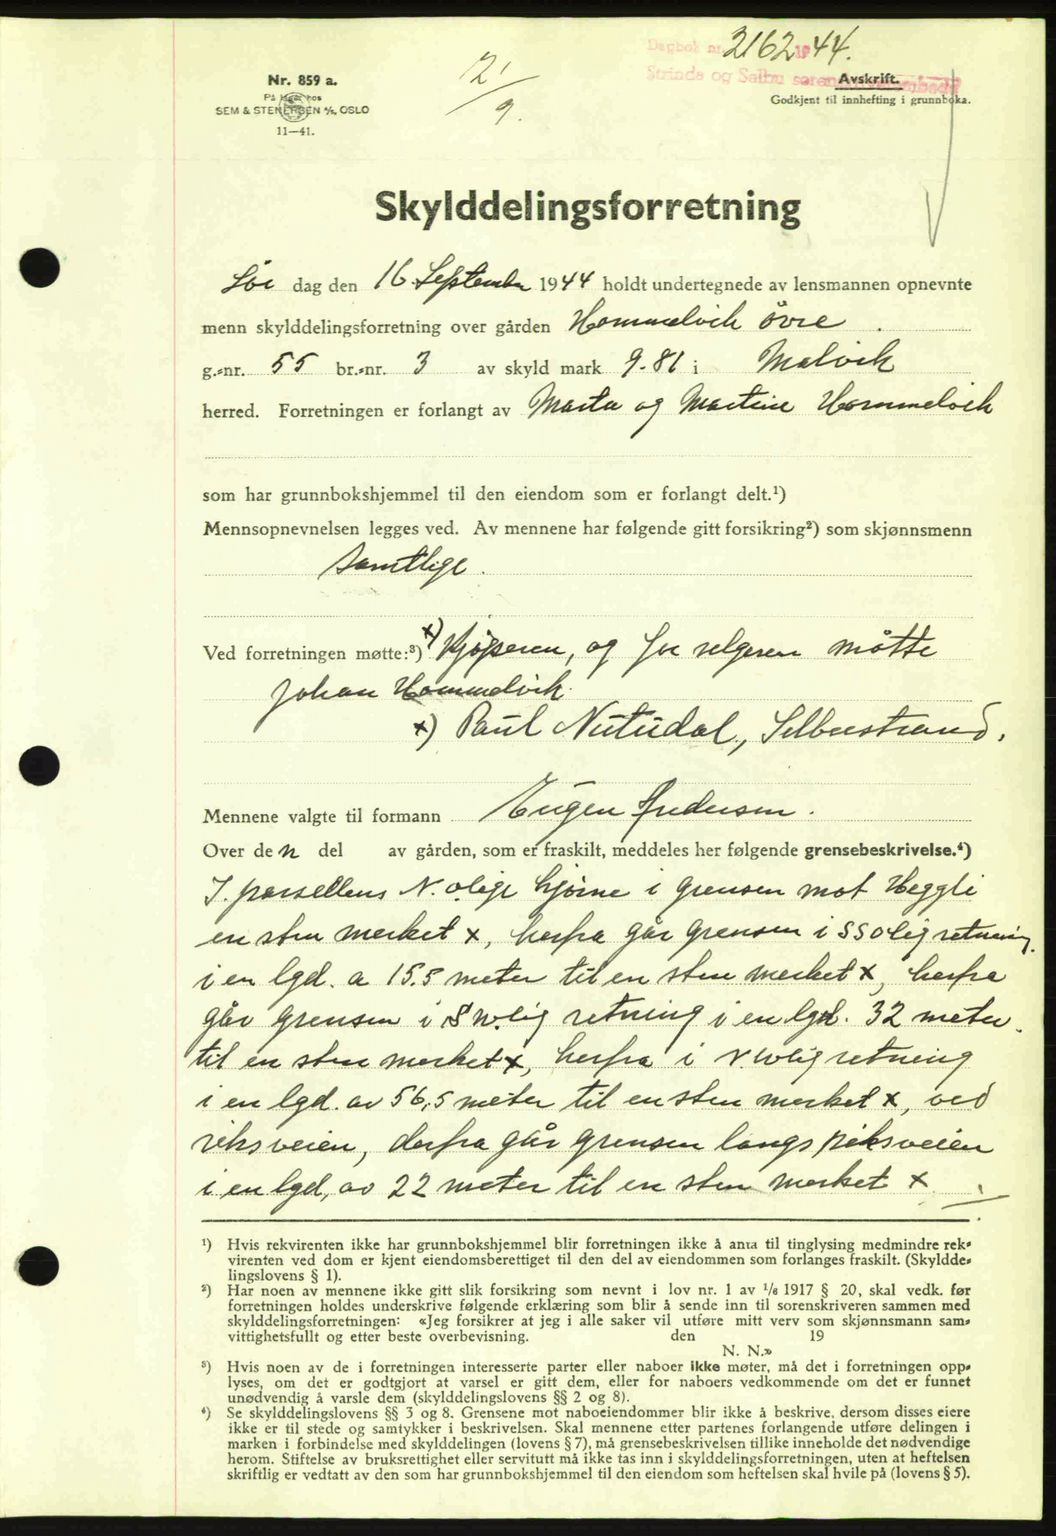 Dagbok nr. 2162 19 44.
Strinda og Selbu sorenskriverembede
Nr. 859 a.
På lager hos
SEM & STENERSEN A/S, OSLO
11—41.
21/9.
Avskrift.
Godkjent til innhefting i grunnboka.
Skylddelingsforretning
Lør dag den 16 September 1944 holdt undertegnede av lensmannen opnevnte
menn skylddelingsforretning over gården Hommelvik øvre .
g.-nr. 55 br.-nr. 3 av skyld mark 9.81 i Malvik
herred. Forretningen er forlangt av Marta og Martine Hommelvik
som har grunnbokshjemmel til den eiendom som er forlangt delt.¹)
Mennsopnevnelsen legges ved. Av mennene har følgende gitt forsikring²) som skjønnsmenn
samtlige.
Ved forretningen møtte:³) x) Kjøperen, og for selgeren møtte
Johan Hommelvik.
x) Paul , Selbustrand.
Mennene valgte til formann Eugen Andersen.
Over den del av gården, som er fraskilt, meddeles her følgende grensebeskrivelse.⁴)
I parsellens N.olige hjørne i grensen mot Heggli
en sten merket x, herfra går grensen i SSolig retning
i en lgd. a 15.5 meter til en sten merket x, herfra
går grensen i S.W.lig retning i en lgd. 32 meter
til en sten merket x, herfra i N.Wlig retning
i en lgd. av 56,5 meter til en sten merket x, ved
riksveien, derfra går grensen langs riksveien
i en lgd. av 22 meter til en sten merket x
¹) Hvis rekvirenten ikke har grunnbokshjemmel blir forretningen ikke å anta til tinglysing medmindre rek-
virenten ved dom er kjent eiendomsberettiget til den del av eiendommen som forlanges fraskilt. (Skyldde-
lingslovens § 1).
²) Har noen av mennene ikke gitt slik forsikring som nevnt i lov nr. 1 av 1/6 1917 § 20, skal vedk. før
forretningen holdes underskrive følgende erklæring som blir å sende inn til sorenskriveren sammen med
skylddelingsforretningen: «Jeg forsikrer at jeg i alle saker vil utføre mitt verv som skjønnsmann sam-
vittighetsfullt og etter beste overbevisning. den 19
N. N.»
³) Hvis noen av de i forretningen interesserte parter eller naboer ikke møter, må det i forretningen opp-
lyses, om det er godtgjort at varsel er gitt dem, eller for naboers vedkommende om det er funnet
unødvendig å varsle dem (skylddelingslovens §§ 2 og 8).
⁴) Se skylddelingslovens §§ 3 og 8. Grensene mot naboeiendommer blir ikke å beskrive, dersom disses eiere
ikke er til stede og samtykker i beskrivelsen. Skal mennene etter partenes forlangende utføre delingen i
marken i forbindelse med skylddelingen (lovens § 7), må grensebeskrivelsen tillike inneholde det nødvendige
herom. Stiftelse av bruksrettighet eller servitutt må ikke tas inn i skylddelingsforretningen, uten at heftelsen
skriftlig er vedtatt av den som har grunnbokshjemmel til den eiendom som heftelsen skal hvile på (lovens § 5).